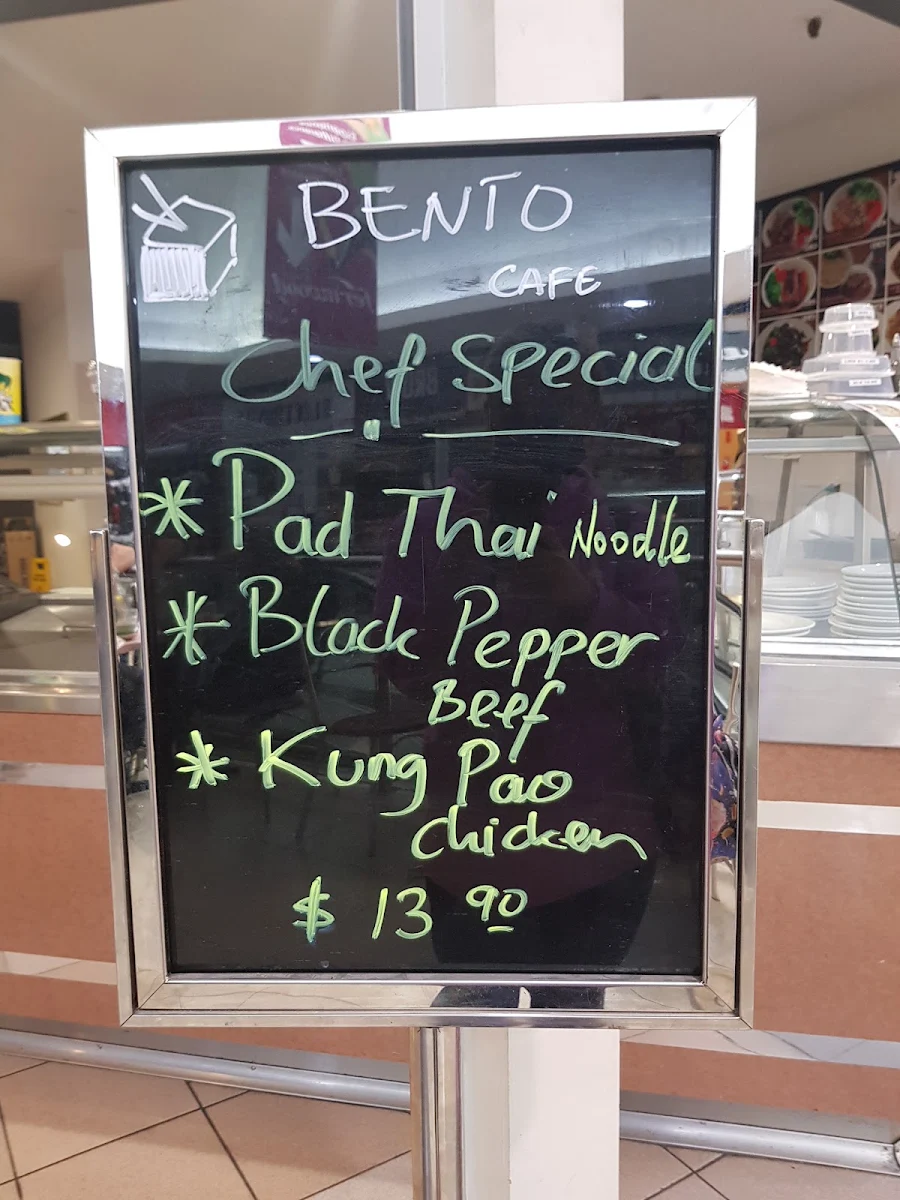 BENTO
CAFE
Chef Special
* Pad Thai Noodle
* Black Pepper
Beef
* Kung Pao
Chicken
$ 13 90